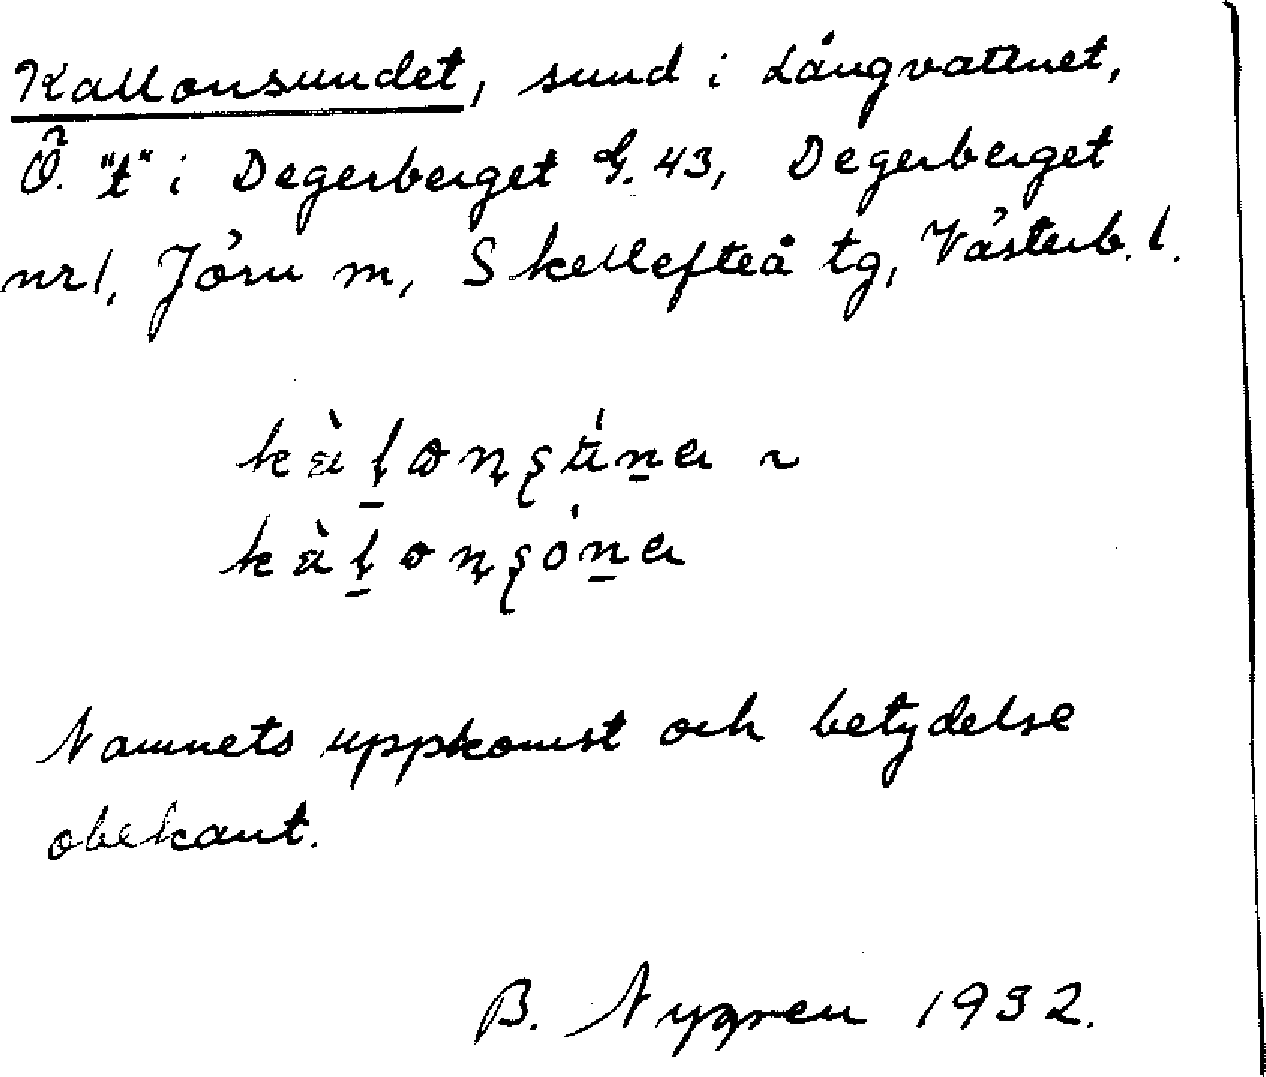 Kallonsundet, sund i Långvattnet,
Ö. "t" i Degerberget G. 43, Degerberget
nr 1, Jörn m, Skellefteå tg, Västerb. l.
Namnets uppkomst och betydelse
obekant.
B. Nygren 1932.